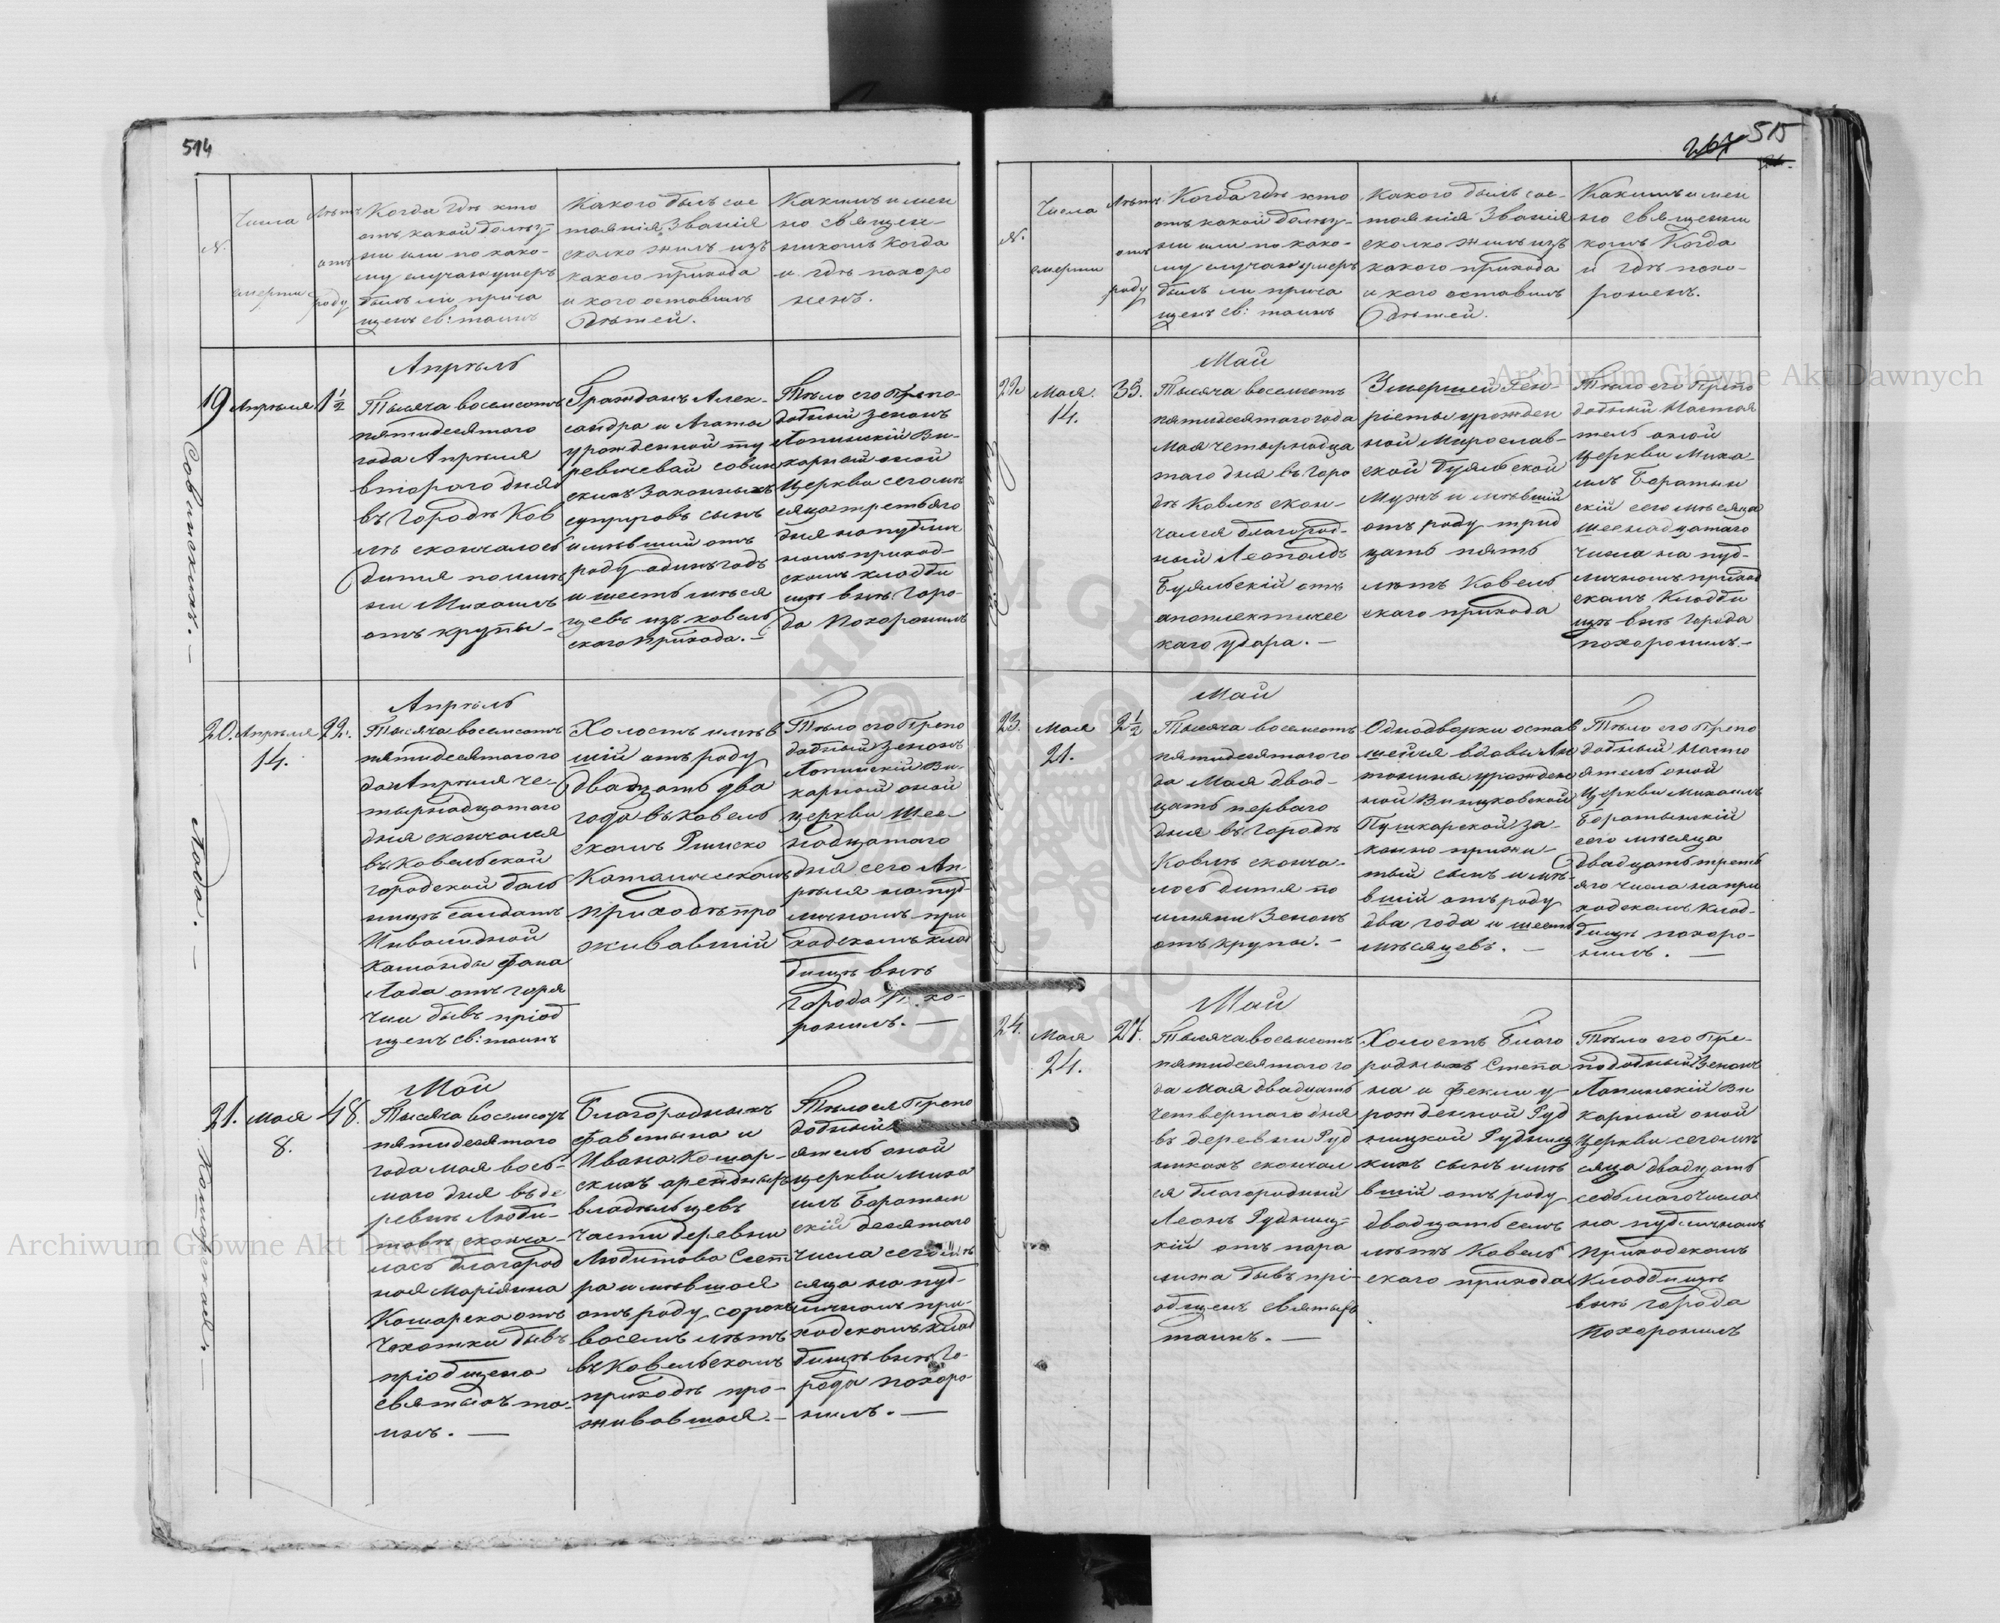 514
N.
Числа
смерти
Лѣтъ
отъ
роду
Когда гдѣ кто
отъ какой болѣз-
ни или по како-
му случаю умеръ
былъ ли прича
щенъ св: таинъ
Какого былъ сос
тоянія, Званія
сколко жилъ изъ
какого прихода
и кого оставилъ
Дѣтей.
Какимъ имен
но священ-
никомъ когда
и гдѣ похоро
ненъ.
19
Апрѣля
1 1/2
Совинскихъ. —
Апрѣль
Тысяча восемсотъ
пятидесятого
года Апрѣля
второго дня
въ Городѣ Ков
лѣ скончалось
Дитя по имѣ
ни Михаилъ
отъ крупы —
Гражданъ Алек-
сандра и Агаты
урожденной ту
ревичевай Совин
скихъ Законныхъ
супруговъ сынъ
имѣвший отъ
роду одинъ годъ
и шесть мѣся
цевъ изъ ковель
ского Прихода. —
Тѣло его Препо-
добный Зенонъ
Лопинскій Ви-
карный оной
Церкви сего мѣ
сяца третьяго
дня на публич
номъ приход-
скомъ кладби
щѣ внѣ Горо-
да Похоронилъ
20.
Апрѣля
14.
22.
Лада. —
Апрѣль
Тысяча восемсотъ
пятидесятого го
да Апрѣля че-
тырнадцатого
дня скончался
въ Ковельской
городской боль
ницѣ солдатъ
Инвалидной
Команды Фома
Лада отъ горя
чки бывъ пріоб
щенъ св: таинъ
Холостъ имѣв
шій отъ роду
Двадцать два
года въ Ковель
скомъ Римско
Католическомъ
приходѣ про
живавшій
Тѣло его Препо
добный Зенонъ
Лопинскій Ви-
карный оной
церкви Шес
надцатого
дня сего Ап
рѣля на пуб
личномъ при
ходскомъ клад
бищѣ внѣ
города По хо-
ронилъ. —
21.
Мая
8.
48.
Кошарской. —
Май
Тысяча восемсотъ
пятидесятого
года мая вось-
мого дня въ де
ревнѣ Люби-
товѣ сконча-
лась благород
ная Маріянна
Кошарска отъ
Чахотки бывъ
пріобщена
Святыхъ та-
инъ. —
Благородныхъ
Фавстына и
Ивана Кошар-
скихъ арендныхъ
владѣльцевъ
части деревни
Любитова Сест
ра имѣвшая
отъ роду сорокъ
восемъ лѣтъ
въ Ковельскомъ
приходѣ про-
живавшая. —
Тѣло ея Препо
добный
ятель оной
церкви Миха
илъ Баратын
скій десятого
числа сего мѣ
сяца на пуб-
личномъ при-
ходскомъ клад
бищѣ внѣ Го-
рода похоро-
нилъ. —
267
515
N.
Числа
смерти
Лѣтъ
отъ
роду
Когда гдѣ кто
отъ какой болѣз-
ни или по како-
му случаю умеръ
былъ ли прича
щенъ св: таинъ
Какого былъ сос-
тоянія Званія
сколко жилъ изъ
какого прихода
и кого оставилъ
Дѣтей.
Какимъ имен
но священни
комъ Когда
и гдѣ похо-
роненъ.
22.
Мая.
14.
35.
Май
Тысяча восемсотъ
пятидесятого года
Мая четырнадца
таго дня въ Горо
дѣ Ковлѣ скон-
чался благород-
ный Леопольдъ
Буяльскій отъ
апоплектичес
каго удара. —
Умершей Ген-
ріеты урожден
ной Мирослав-
ской Буяльской
Мужъ имѣвшій
отъ роду трид
цать пять
лѣтъ Ковель
скаго прихода
Тѣло его Препо
добный Настоя
тель оной
Церкви Миха-
илъ Баратын
скій сего мѣсяца
шеснадцатаго
числа на пуб-
личномъ приход
скомъ Кладби
щѣ внѣ города
похоронилъ. —
23.
Мая
21.
2 1/2
Май
Тысяча восемсотъ
пятидесятого го
да Мая двад-
цать перваго
дня въ городѣ
Ковлѣ сконча-
лось дитя по
имяни Зенонъ
отъ крупы. —
Однодворки остав
шейся вдовы Ан
тонины урожден
ной Винцковской
Пушкарской за-
конно прижи-
тый сынъ имѣ-
вшій отъ роду
два года и шесть
мѣсяцевъ. —
Тѣло его Препо
добный Насто
ятель оной
Церкви Михаилъ
Баратынскій
сего мѣсяца
двадцать треть
яго числа на при
ходскомъ клад-
бищѣ похоро-
нилъ. —
24.
Мая
24.
27.
Май
Тысяча восемсотъ
пятидесятого го
да Мая двадцать
Четвертаго дня
въ деревни Руд
никахъ скончал
ся благородный
Леонъ Рудниц-
кій отъ пара
лижа бывъ прі-
общенъ святыхъ
таинъ. —
Холостъ Благо
родныхъ Степа
на и Феклы у-
рожденной Руд
ницкой Рудниц
кихъ сынъ имѣ
вшій отъ роду
двадцать семь
лѣтъ Ковель
скаго прихода
Тѣло его Пре-
подобный Зенонъ
Лопинскій Ви
карный оной
Церкви сего мѣ
сяца двадцать
седьмого числа
на публичномъ
Приходскомъ
Кладбищѣ
внѣ города
Похоронилъ
Archiwum Główne Akt Dawnych
Archiwum Główne Akt Dawnych